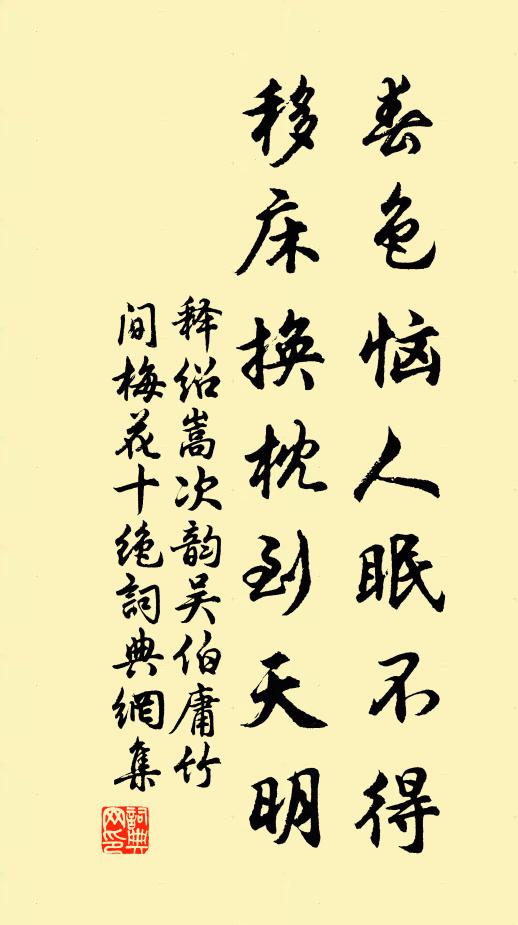 春色恼人眠不得
移床换枕到天明
释绍嵩次韵吴伯庸竹
间梅花十绝詞典網集
詞典
网印